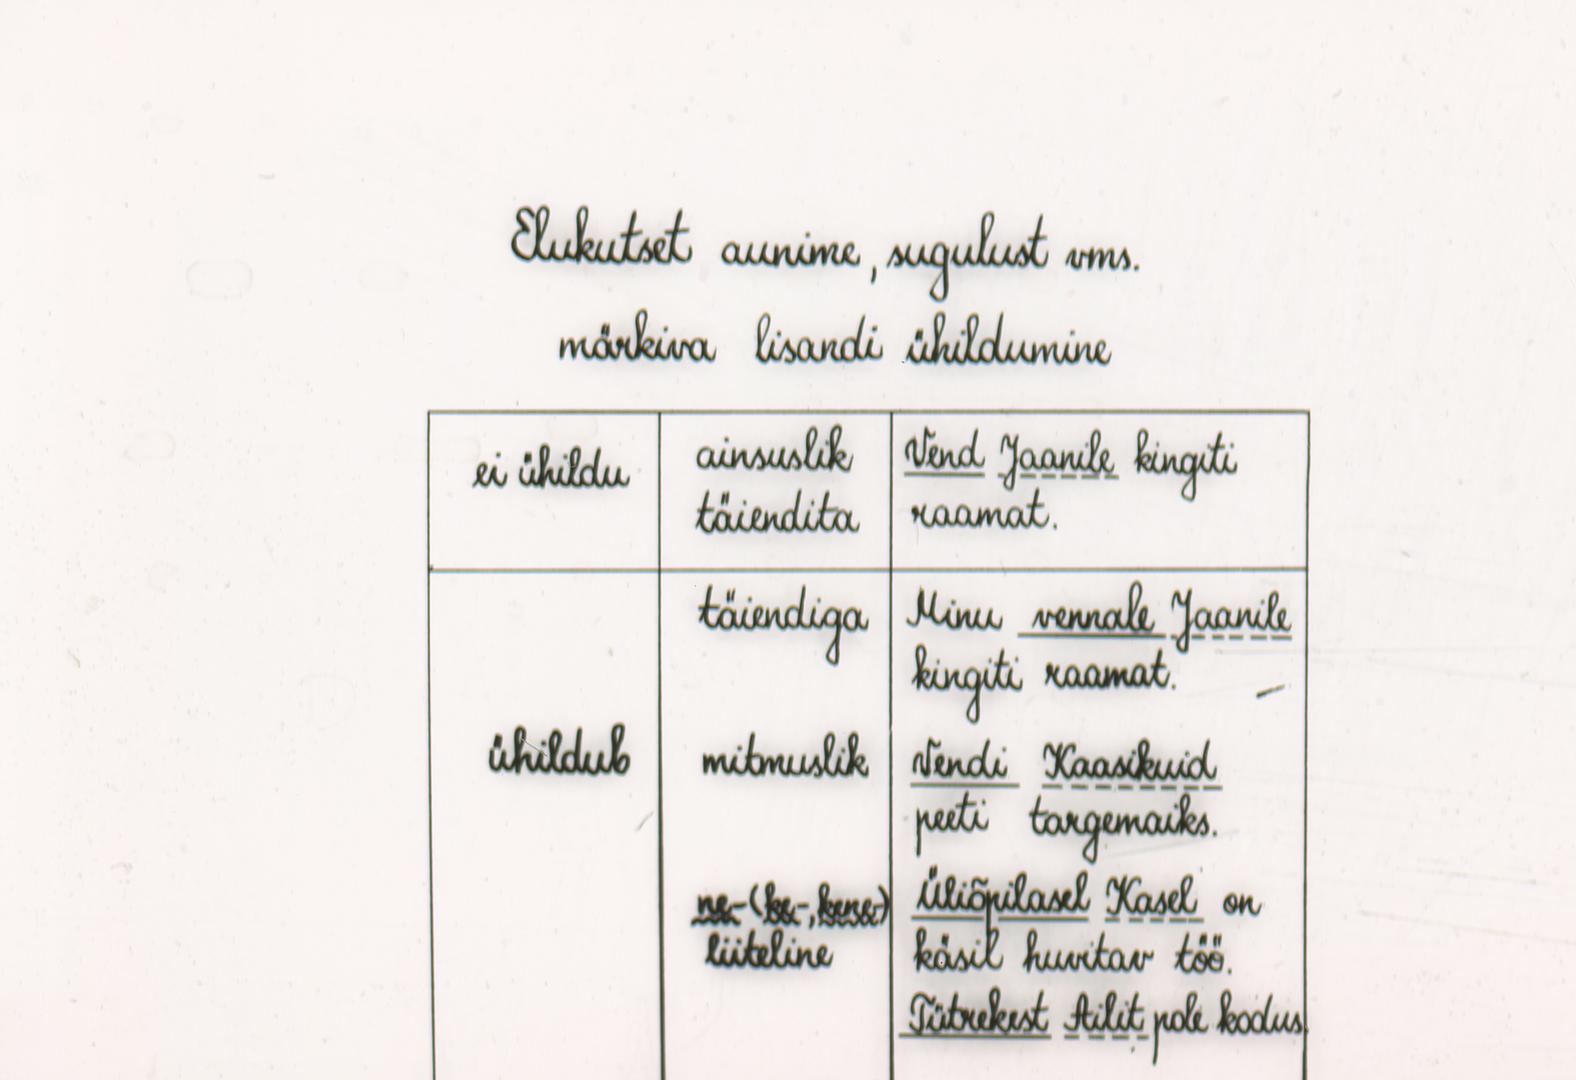 Elukutset aunime, sugulust vms.
märkiva lisandi ühildumine
ei ühildu
ainsuslik
täiendita
Vend Jaanile kingiti
raamat.
ühildub
täiendiga
Minu vennale Jaanile
kingiti raamat.
mitmuslik
Vendi Kaasikuid
peeti targemaiks.
ne-(ke-,kene-)
liiteline
Üliõpilasel Kasel on
käsil huvitav töö.
Tütrekest Ailit pole kodus.